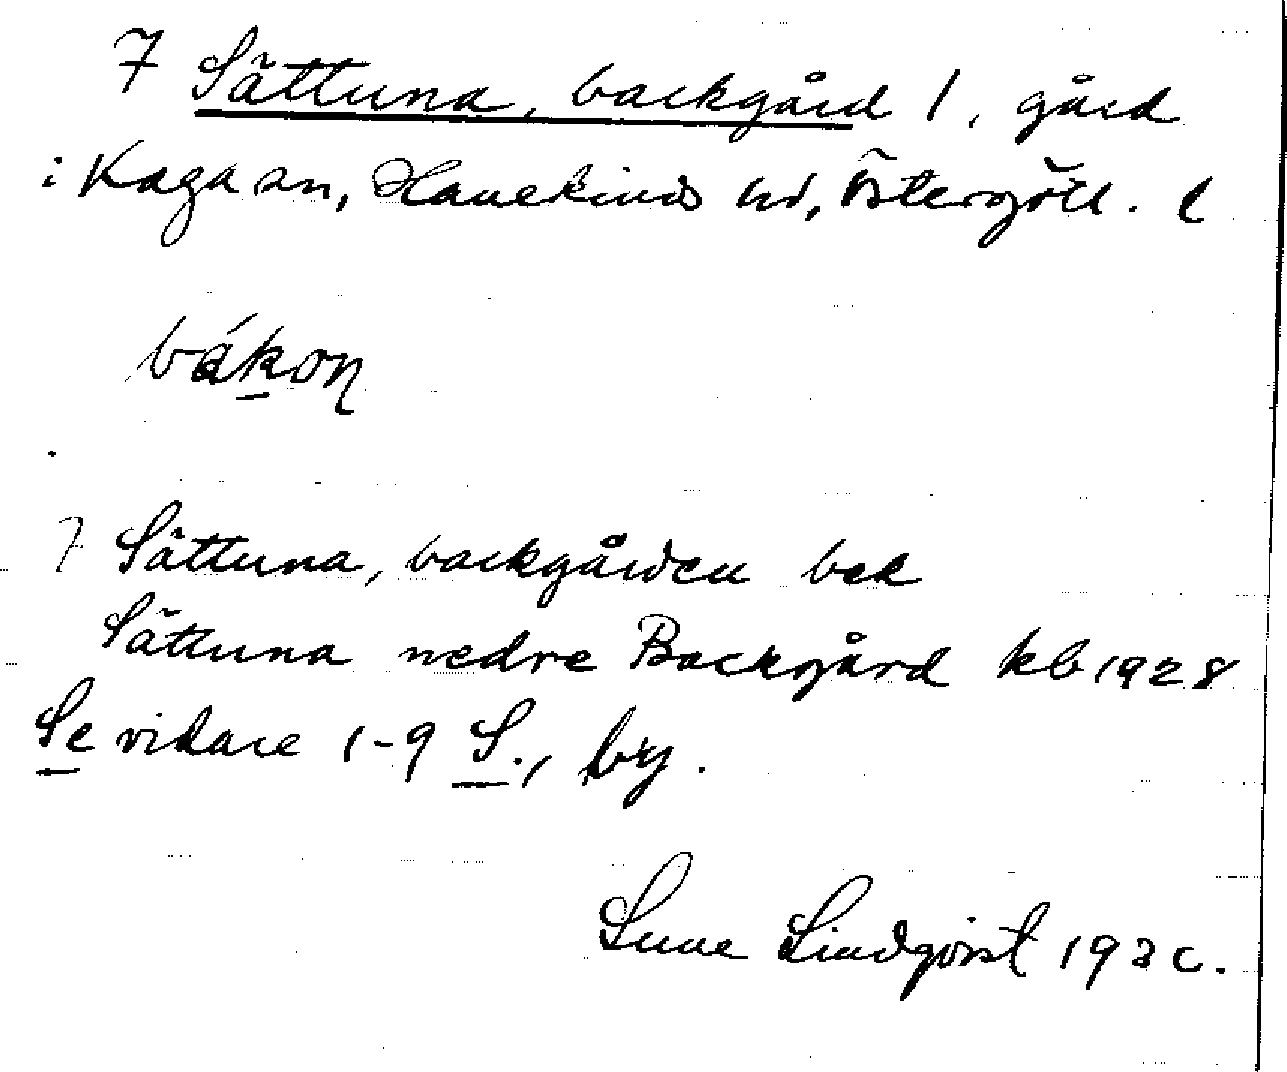 7 Sättuna, backgård 1, gård
i Kaga sn, Hanekinds hd, Östergötl. l
bákon
7 Sättuna, backgården bek
Sättuna nedre Backgård kb 1928
Se vidare 1-9 S., by.
Sune Lindqvist